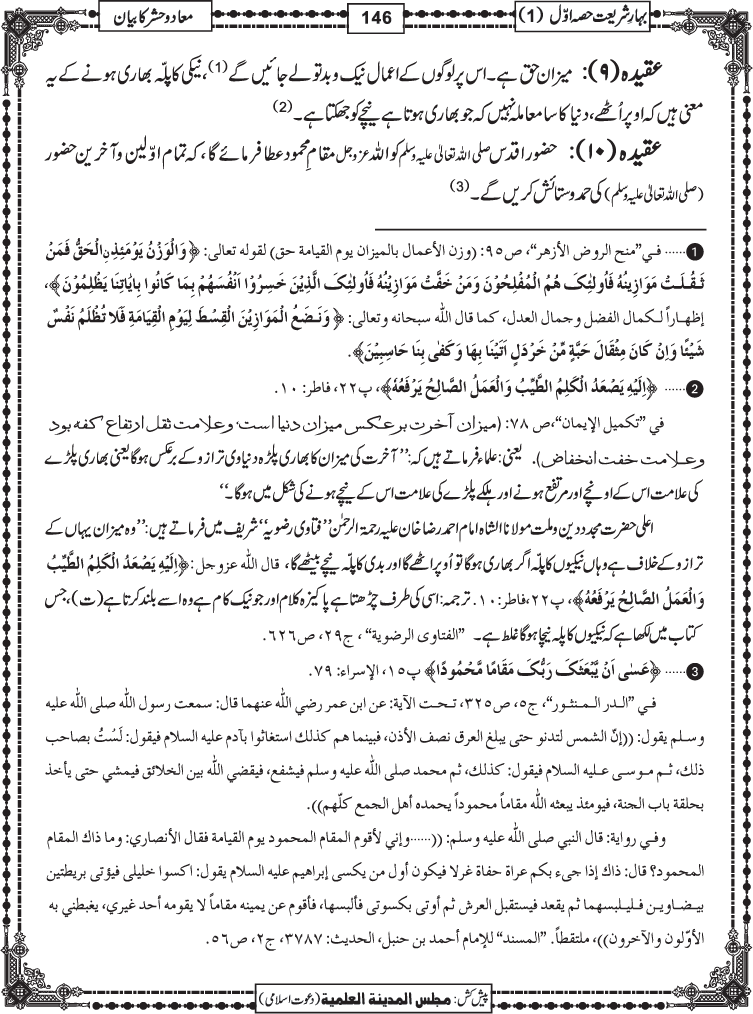 بہارِ شریعت حصہ اوّل (1)
146
معاد و حشر کا بیان
عقیدہ (۹): میزان حق ہے۔ اس پر لوگوں کے اعمال نیک و بد تولے جائیں گے (1)، نیکی کا پلّہ بھاری ہونے کے یہ
معنی ہیں کہ اوپر اُٹھے، دنیا کا سا معاملہ نہیں کہ جو بھاری ہوتا ہے نیچے کو جھکتا ہے۔ (2)
عقیدہ (۱۰): حضور اقدس صلی اللہ تعالیٰ علیہ وسلم کو اللہ عزوجل مقامِ محمود عطا فرمائے گا، کہ تمام اوّلین و آخرین حضور
(صلی اللہ تعالیٰ علیہ وسلم) کی حمد و ستائش کریں گے۔ (3)
1 ...... في ”منح الروض الأزهر“، ص۹۵: (وزن الأعمال بالميزان يوم القيامة حق) لقوله تعالى: ﴿وَالْوَزْنُ يَوْمَئِذِنِ الْحَقُّ فَمَنْ
ثَقُلَتْ مَوَازِينُهُ فَأُولٰئِکَ هُمُ الْمُفْلِحُوْنَ وَمَنْ خَفَّتْ مَوَازِيْنُهُ فَأُولٰئِکَ الَّذِيْنَ خَسِرُوْا اَنْفُسَهُمْ بِمَا كَانُوا بِاٰيَاتِنَا يَظْلِمُوْنَ﴾،
إظهاراً لكمال الفضل وجمال العدل، كما قال اللّٰه سبحانه وتعالى: ﴿وَنَضَعُ الْمَوَازِيْنَ الْقِسْطَ لِيَوْمِ الْقِيَامَةِ فَلَا تُظْلَمُ نَفْسٌ
شَيْئًا وَاِنْ كَانَ مِثْقَالَ حَبَّةٍ مِّنْ خَرْدَلٍ اَتَيْنَا بِهَا وَكَفٰى بِنَا حَاسِبِيْنَ﴾.
2 ...... ﴿اِلَيْهِ يَصْعَدُ الْكَلِمُ الطَّيِّبُ وَالْعَمَلُ الصَّالِحُ يَرْفَعُهٗ﴾، پ۲۲، فاطر: ۱۰.
في ”تكميل الإيمان“، ص ۷۸: (میزان آخرت بر عکس میزان دنیا است، وعلامت ثقل ارتفاع کفہ بود
وعلامت خفت انخفاض). یعنی: علماء فرماتے ہیں کہ: ”آخرت کی میزان کا بھاری پلڑہ دنیاوی ترازو کے برعکس ہوگا یعنی بھاری پلڑے
کی علامت اس کے اونچے اور مرتفع ہونے اور ہلکے پلڑے کی علامت اس کے نیچے ہونے کی شکل میں ہوگا۔“
اعلی حضرت مجدد دین و ملت مولانا الشاہ امام احمد رضا خان علیہ رحمۃ الرحمٰن ”فتاوی رضویہ“ شریف میں فرماتے ہیں: ”وہ میزان یہاں کے
ترازو کے خلاف ہے وہاں نیکیوں کا پلّہ اگر بھاری ہوگا تو اُوپر اٹھے گا اور بدی کا پلّہ نیچے بیٹھے گا، قال اللّٰه عزوجل: ﴿اِلَيْهِ يَصْعَدُ الْكَلِمُ الطَّيِّبُ
وَالْعَمَلُ الصَّالِحُ يَرْفَعُهٗ﴾، پ۲۲، فاطر: ۱۰. ترجمہ: اسی کی طرف چڑھتا ہے پاکیزہ کلام اور جو نیک کام ہے وہ اسے بلند کرتا ہے (ت)، جس
کتاب میں لکھا ہے کہ نیکیوں کا پلہ نیچا ہوگا غلط ہے۔ ”الفتاوی الرضوية“، ج۲۹، ص۶۲۶.
3 ...... ﴿عَسٰى اَنْ يَّبْعَثَکَ رَبُّکَ مَقَامًا مَّحْمُودًا﴾ پ۱۵، الإسراء: ۷۹.
في ”الدر المنثور“، ج۵، ص۳۲۵، تحت الآية: عن ابن عمر رضي اللّٰه عنهما قال: سمعت رسول اللّٰه صلى اللّٰه عليه
وسلم يقول: ((إنّ الشمس لتدنو حتى يبلغ العرق نصف الأذن، فبينما هم كذلك استغاثوا بآدم عليه السلام فيقول: لَسْتُ بصاحب
ذلك، ثم موسى عليه السلام فيقول: كذلك، ثم محمد صلى اللّٰه عليه وسلم فيشفع، فيقضي اللّٰه بين الخلائق فيمشي حتى يأخذ
بحلقة باب الجنة، فيومئذ يبعثه اللّٰه مقاماً محموداً يحمده أهل الجمع كلّهم)).
وفي رواية: قال النبي صلى اللّٰه عليه وسلم: ((......وإني لأقوم المقام المحمود يوم القيامة فقال الأنصاري: وما ذاك المقام
المحمود؟ قال: ذاك إذا جيء بكم عراة حفاة غرلا فيكون أول من يكسى إبراهيم عليه السلام يقول: اكسوا خليلى فيؤتى بريطتين
بيضاوين فليلبسهما ثم يقعد فيستقبل العرش ثم أوتى بكسوتى فألبسها، فأقوم عن يمينه مقاماً لا يقومه أحد غيري، يغبطني به
الأوّلون والآخرون))، ملتقطاً. ”المسند“ للإمام أحمد بن حنبل، الحديث: ۳۷۸۷، ج۲، ص۵۶.
پیش کش: مجلس المدینة العلمیة (دعوت اسلامی)